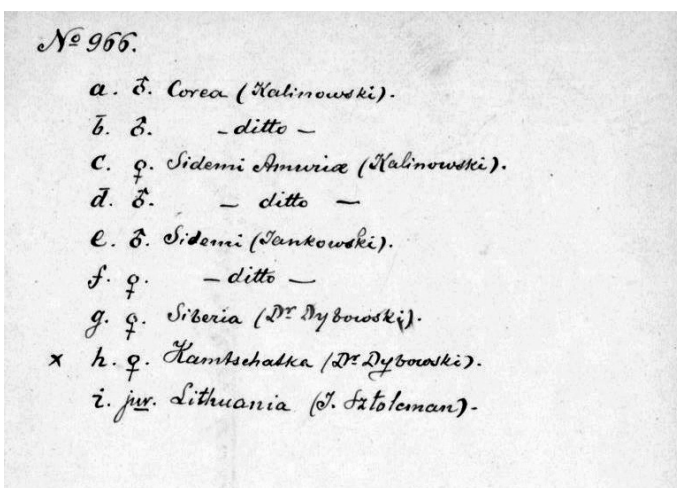 Nº 966.
a. ♂. Corea (Kalinowski).
b. ♂. – ditto –
c. ♀. Sidemi Amuriæ (Kalinowski).
d. ♂. – ditto –
e. ♂. Sidemi (Jankowski).
f. ♀. – ditto –
g. ♀. Siberia (Dr Dybowski).
x h. ♀. Kamtschatka (Dr Dybowski).
i. juv. Lithuania (J. Sztolcman).